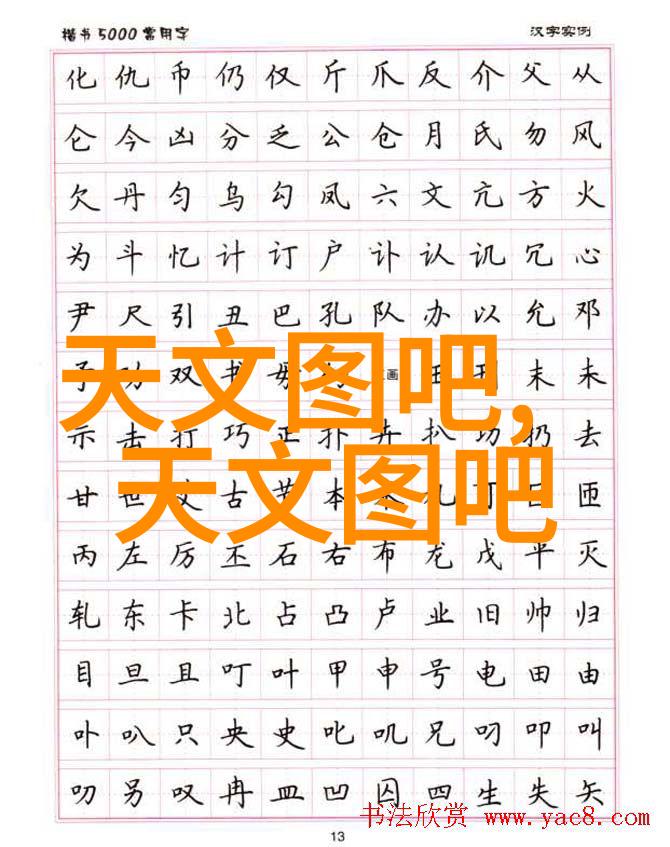 楷书5000常用字 汉字实例
化仇币仍仅斤爪反介父从
仑今凶分乏公仓月氏勿风
欠丹匀乌勾凤六文亢方火
为斗忆计订户讣认讥冗心
尹尺引丑巴孔队办以允邓
予双书画刊末未
天文图吧,
示击打巧正扑卉扒功扔去
天文图吧
甘世古节本匝
丙左厉丕石右布龙戊平灭
轧东卡北占凸卢业旧帅归
目旦且叮叶甲申号电田由
卟叭只央史叱叽兄叼叩叫
叻另叹冉皿凹囚四生失矢
书法欣赏 www.yac8.com
13